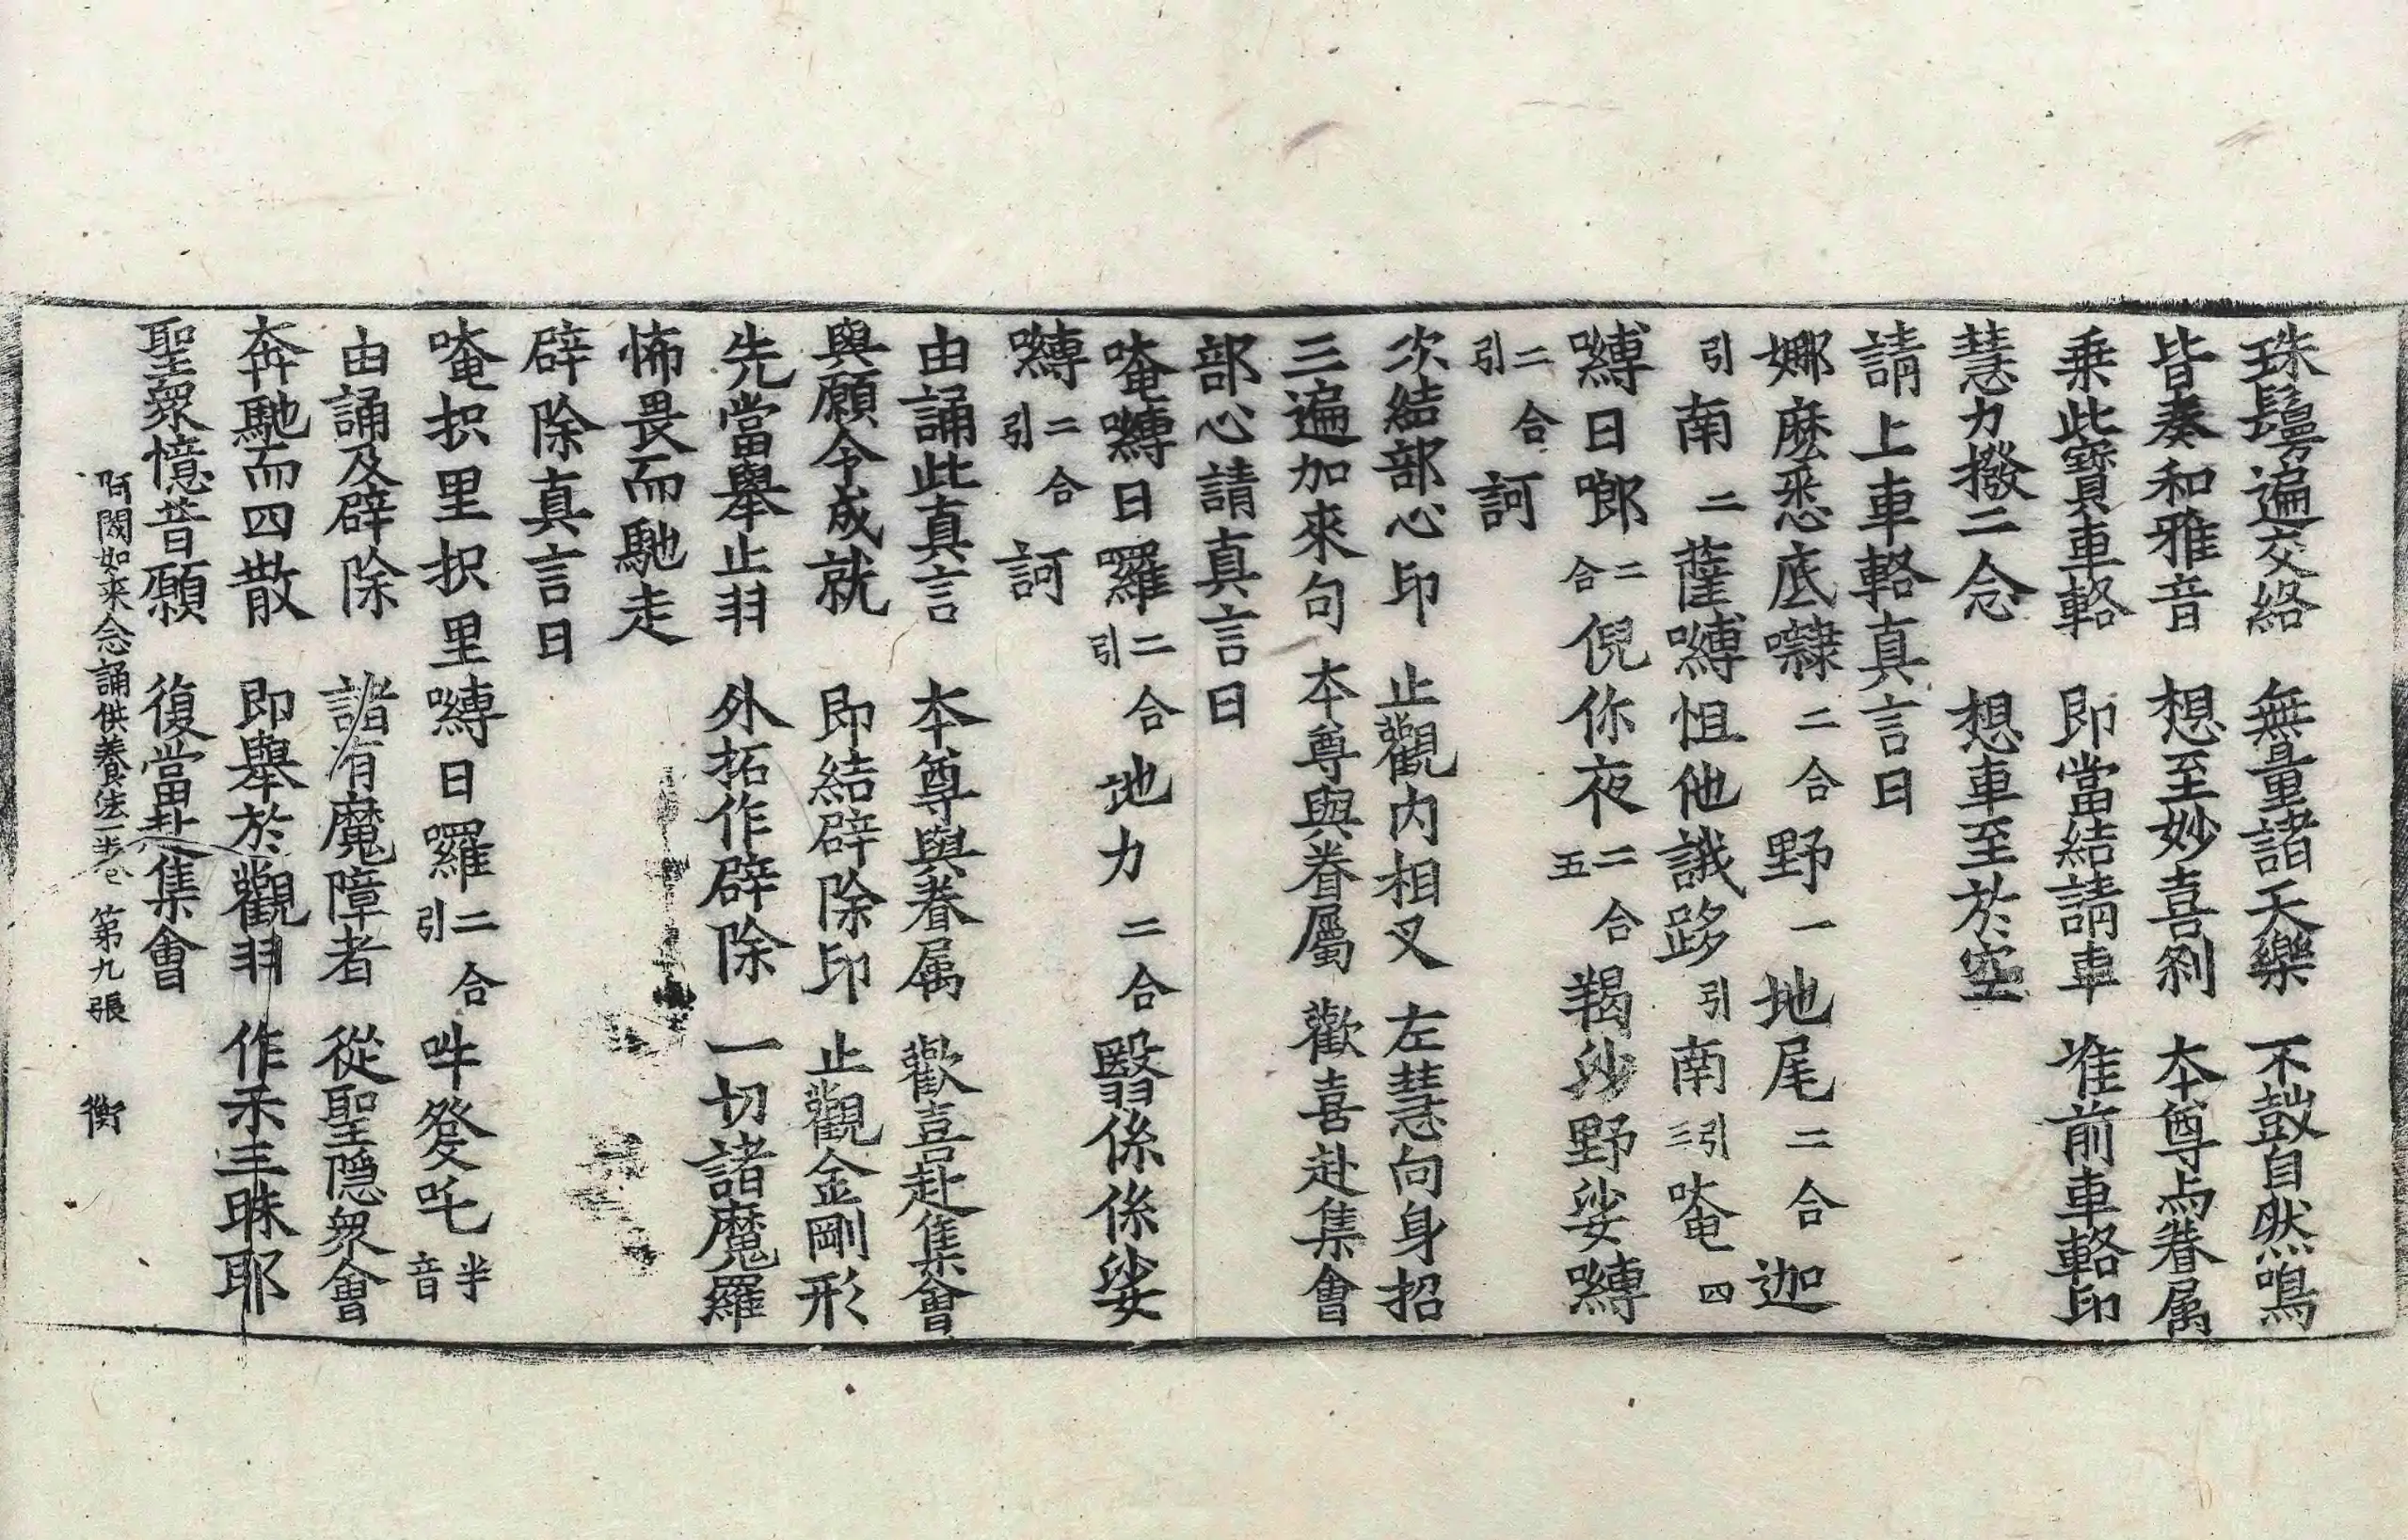 珠鬘遍交絡　無量諸天樂　不鼓自然鳴
皆奏和雅音　想至妙喜剎　本尊与眷属
乗此寶車輅　即當結請車　准前車輅印
慧力撥二念　想車至於空
請上車輅真言曰
娜麼悉底㘑二合野一地尾二合迦
引南二薩嚩怛他誐跢引南引三唵四
嚩日啷二合倪你夜二合五羯沙野娑嚩
二合引訶
次結部心印　止觀内相叉　左慧向身招
三遍加來句　本尊與眷屬　歡喜赴集會
部心請真言曰
唵嚩日羅二合引地力二合翳係係娑
嚩二合引訶
由誦此真言　本尊與眷属　歡喜赴集會
與願令成就　即結辟除印　止觀金剛形
先當舉止羽　外拓作辟除　一切諸魔羅
怖畏而馳走
辟除真言曰
唵枳里枳里嚩日囉二合引吽發吒半音
由誦及辟除　諸有魔障者　從聖隠衆會
奔馳而四散　即舉於觀羽　作禾三昧耶
聖衆憶昔願　復當赴集會
阿閦如来念誦供養法一卷　第九張　衡